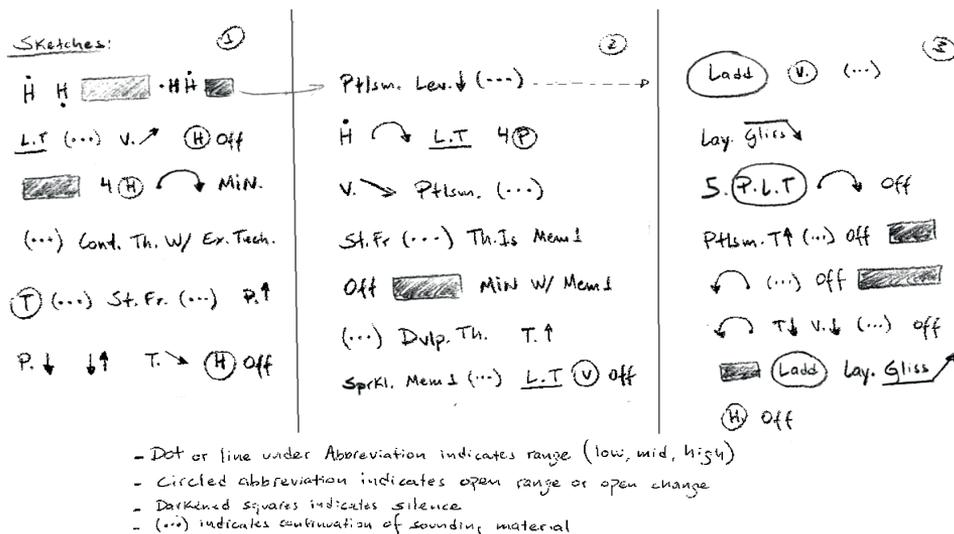 Sketches: 1
H H · H H
L.T (...) V. H Off
4 H MiN.
(...) Cont. Th. W/ Ex. Tech.
T (...) St. Fr. (...) P.
P. T. H Off
2
Ptlsm. Lev. (...)
H L.T 4 P
V. Ptlsm. (...)
St. Fr (...) Th. Is Mem 1
Off MiN W/ Mem 1
(...) Dvlp. Th. T.
Sprkl. Mem 1 (...) L.T V Off
3
Ladd V. (...)
Lay. Gliss
5. P.L.T Off
Ptlsm. T (...) Off
(...) Off
T V. (...) Off
Ladd Lay. Gliss
H. Off
- Dot or line under Abbreviation indicates range (low, mid, high)
- Circled abbreviation indicates open range or open change
- Darkened squares indicates silence
- (...) indicates continuation of sounding material